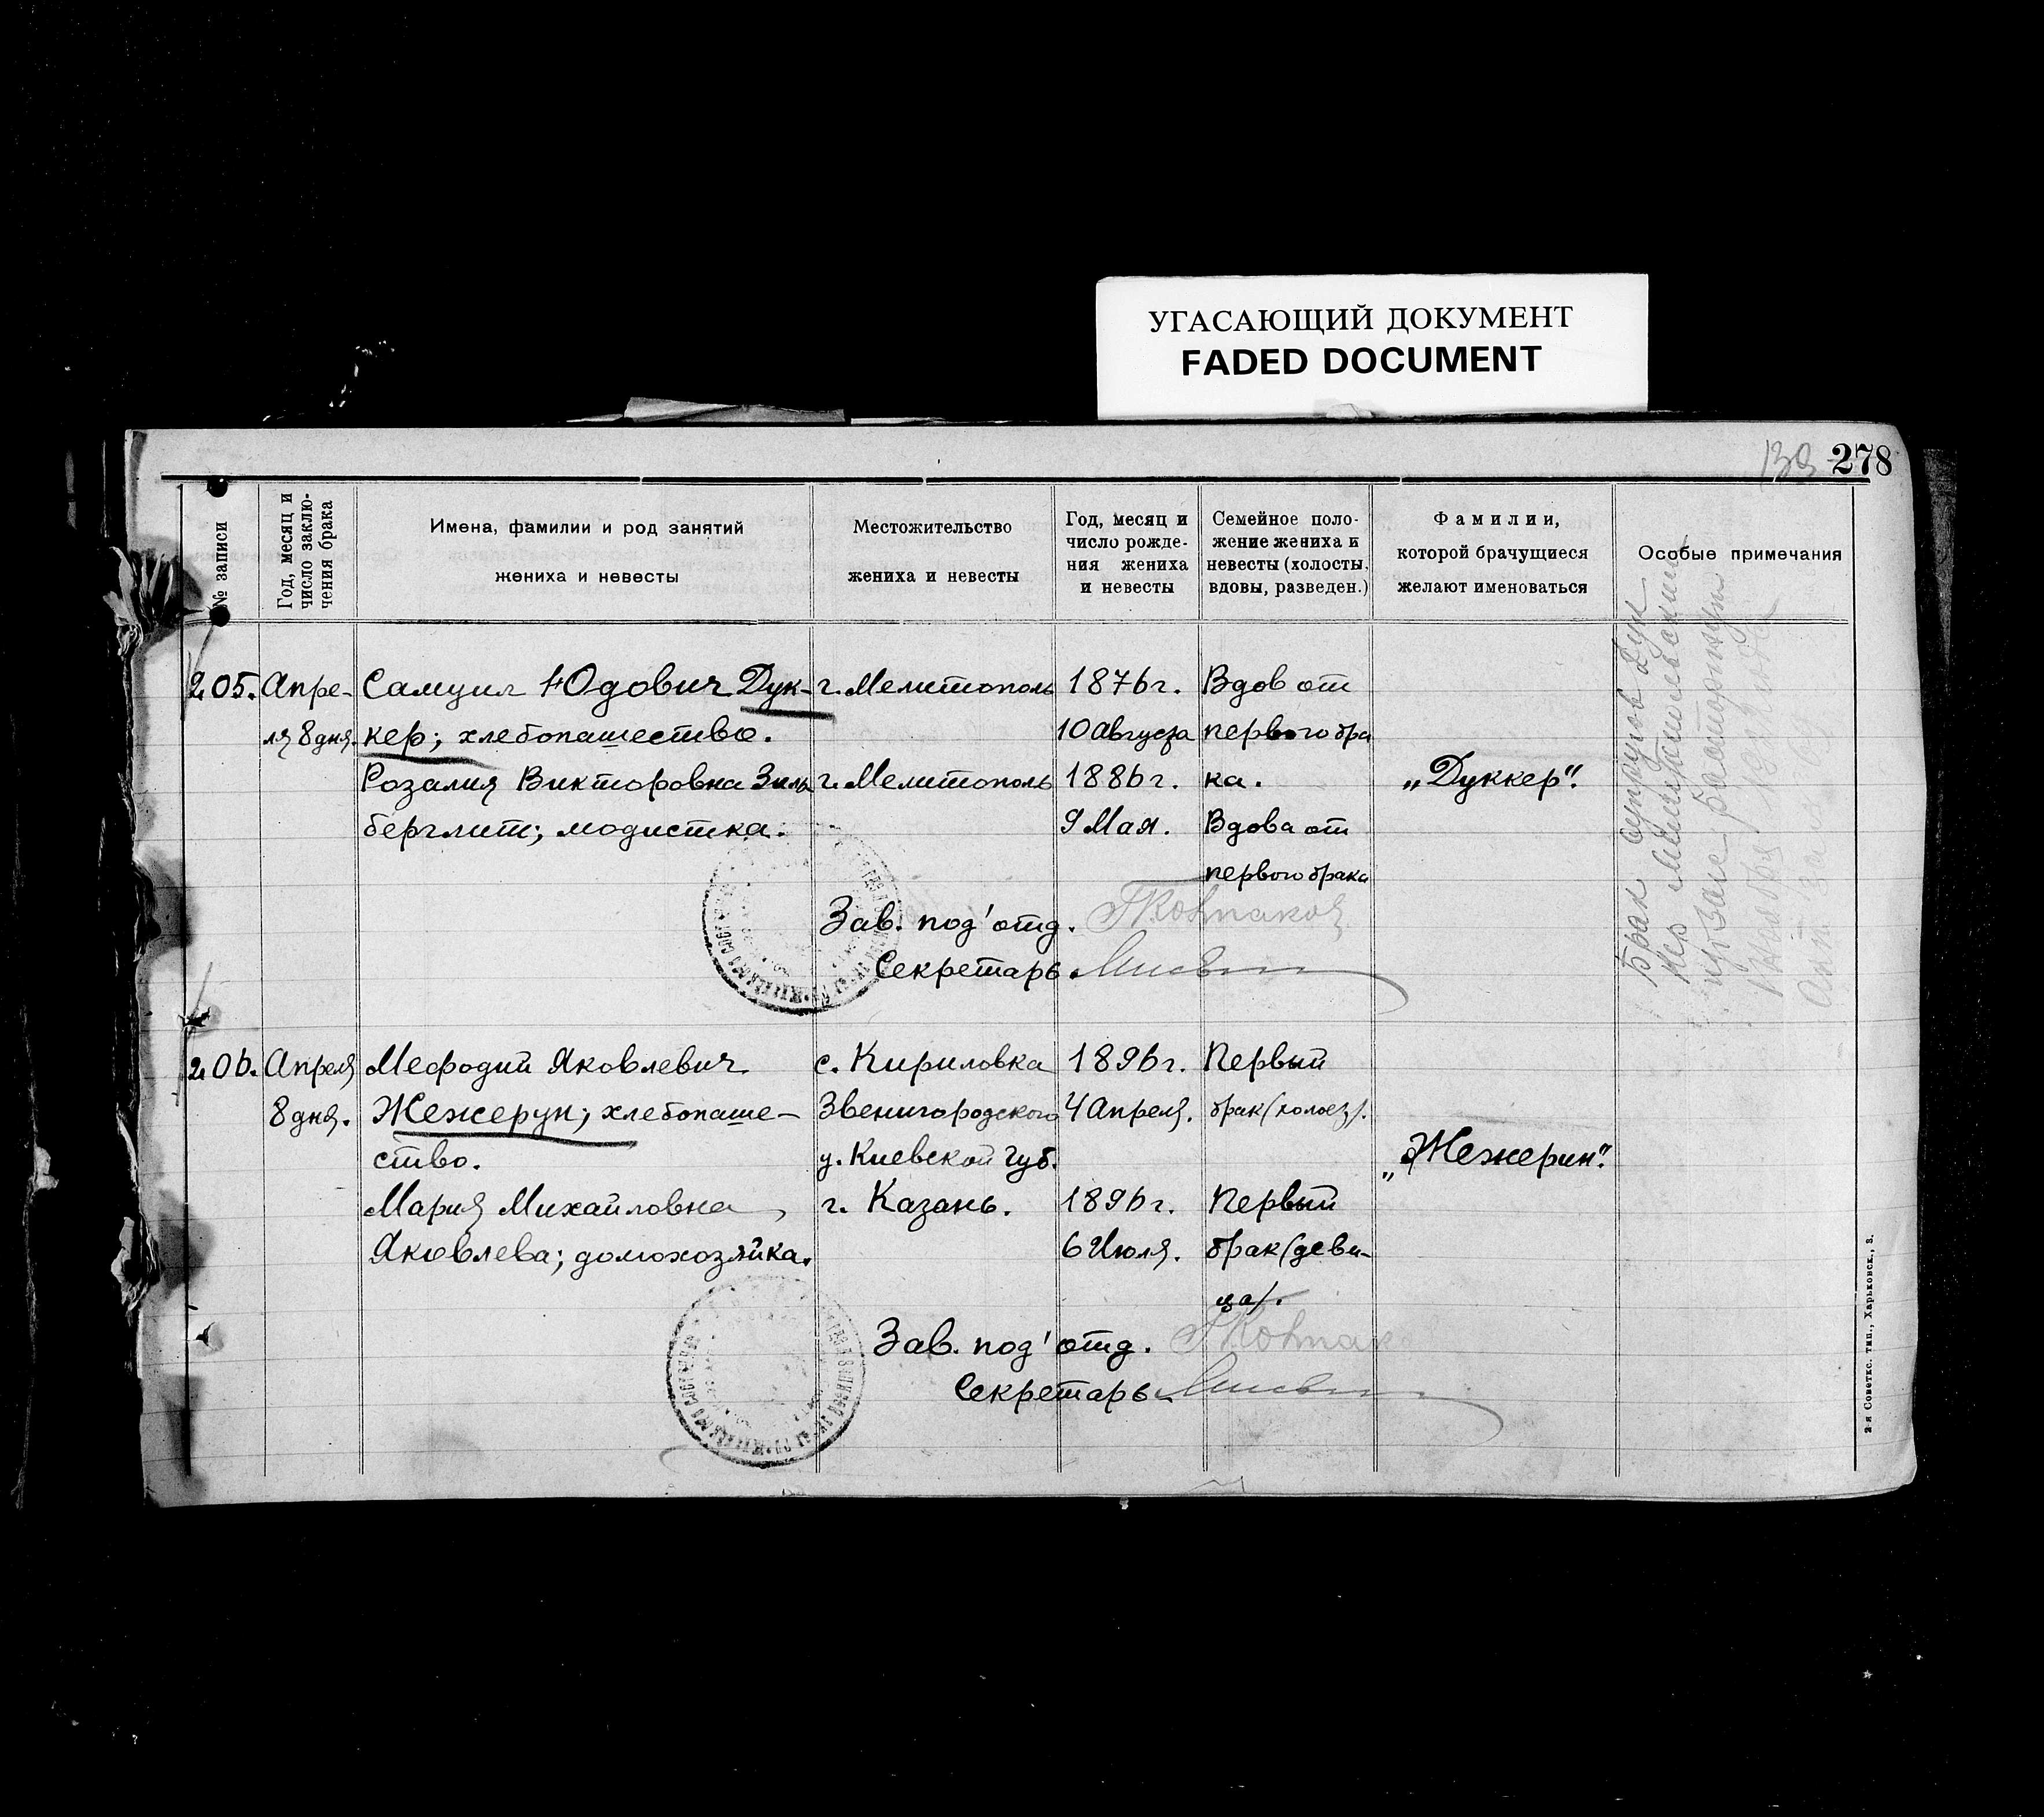 УГАСАЮЩИЙ ДОКУМЕНТ
FADED DOCUMENT
139 278
№ записи
Год, месяц и
число заклю-
чения брака
Имена, фамилии и род занятий
жениха и невесты
Местожительство
жениха и невесты
Год, месяц и
число рожде-
ния жениха
и невесты
Семейное поло-
жение жениха и
невесты (холосты,
вдовы, разведен.)
Фамилии,
которой брачущиеся
желают именоваться
Особые примечания
205.
Апре-
ля 8 дня.
Самуил Юдович Дук-
кер; хлебопашество.
Розалия Викторовна Зиль
берглит; модистка.
г. Мелитополь
г. Мелитополь
1876г.
10 Августа
1886г.
9 Мая.
Вдов от
первого бра
ка.
Вдова от
первого брака
„Дуккер".
Брак супругов Дук
кер
Зав. под'отд.
Секретарь
206.
Апреля
8 дня.
Мефодий Яковлевич
Жежерун; хлебопаше-
ство.
Мария Михайловна
Яковлева; домохозяйка.
с. Кириловка
Звенигородского
у. Киевской губ.
г. Казань.
1896г.
4 Апреля.
1896г.
6 Июля.
Первый
брак (холост).
Первый
брак (деви-
ца).
„Жежерин".
Зав. под'отд.
Секретарь
2-я Советск. тип., Харьковск., 3.